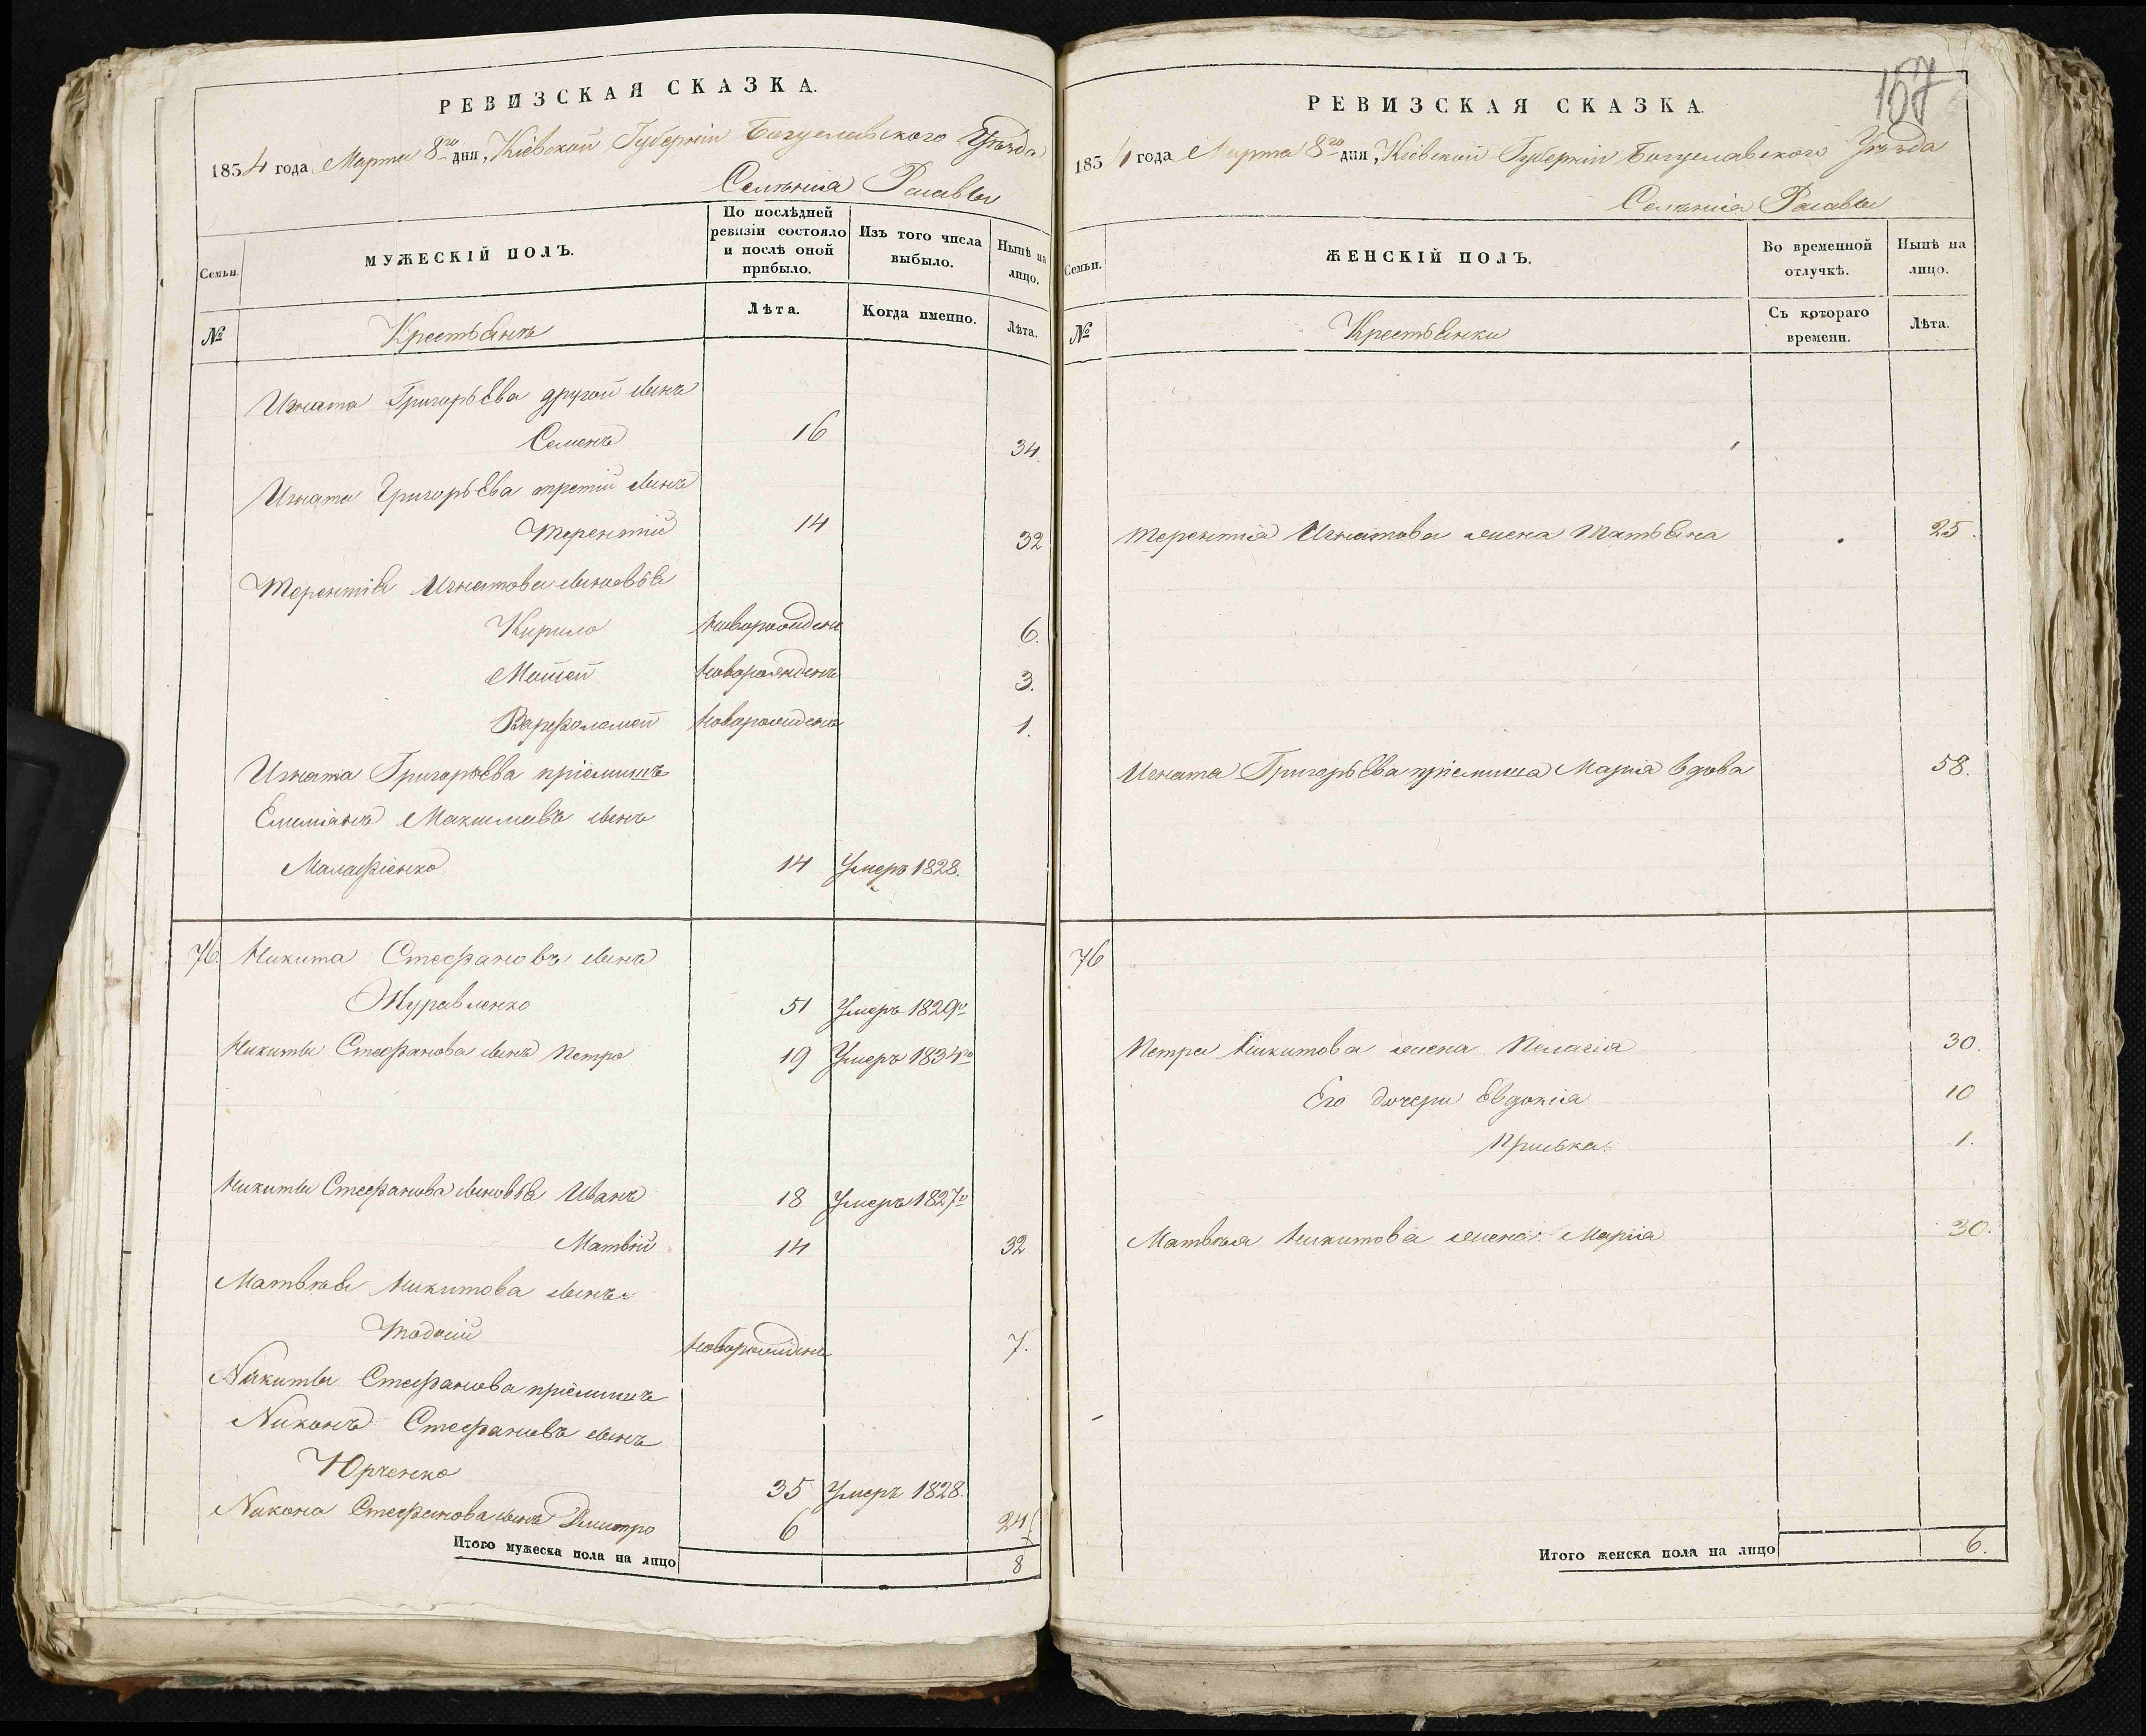 РЕВИЗСКАЯ СКАЗКА.
1834 года Марта 8го дня, Кіевской Губерніи Богуславского Уѣзда
Селѣнія Расавы
Семьи.
МУЖЕСКІЙ ПОЛЪ.
По послѣдней ревизіи состояло и послѣ оной прибыло.
Изъ того числа выбыло.
Нынѣ на лицо.
№
Крестьянъ
Лѣта.
Когда именно.
Лѣта.
Игната Григорьева другой сынъ
Семенъ 16 34.
Игната Григорьева третій сынъ
Терентій 14 32
Терентія Игнатова сыновья
Кирило Новорожденъ 6.
Мойсей Новорожденъ 3.
Варфоломей Новорожденъ 1.
Игната Григорьева пріемышъ
Емеліянъ Максимовъ сынъ
Малафіенко 14 Умеръ 1828.
76. Никита Стефановъ сынъ
Журавленко 51 Умеръ 1829го
Никиты Стефанова сынъ Петро 19 Умеръ 1834го
Никиты Стефанова сыновья Иванъ 18 Умеръ 1827го
Матвій 14 32
Матвѣя Никитова сынъ
Тодосій Новорожденъ 7.
Никиты Стефанова пріемышъ
Никонъ Стефановъ сынъ
Юрченко 35 Умеръ 1828.
Никона Стефанова сынъ Дмитро 6 24
Итого мужеска пола на лицо 8
157
РЕВИЗСКАЯ СКАЗКА.
1834 года Марта 8го дня, Кіевской Губерніи Богуславского Уѣзда
Селѣнія Расавы
Семьи.
ЖЕНСКІЙ ПОЛЪ.
Во временной отлучкѣ.
Нынѣ на лицо.
№
Крестьянки
Съ котораго времени.
Лѣта.
Терентія Игнатова жена Татьяна 25.
Игната Григорьева пріемыша Марія вдова 58.
76
Петра Никитова жена Пелагія 30.
Его дочери Евдокія 10
Приська 1.
Матвѣя Никитова жена Марія 30.
Итого женска пола на лицо 6.